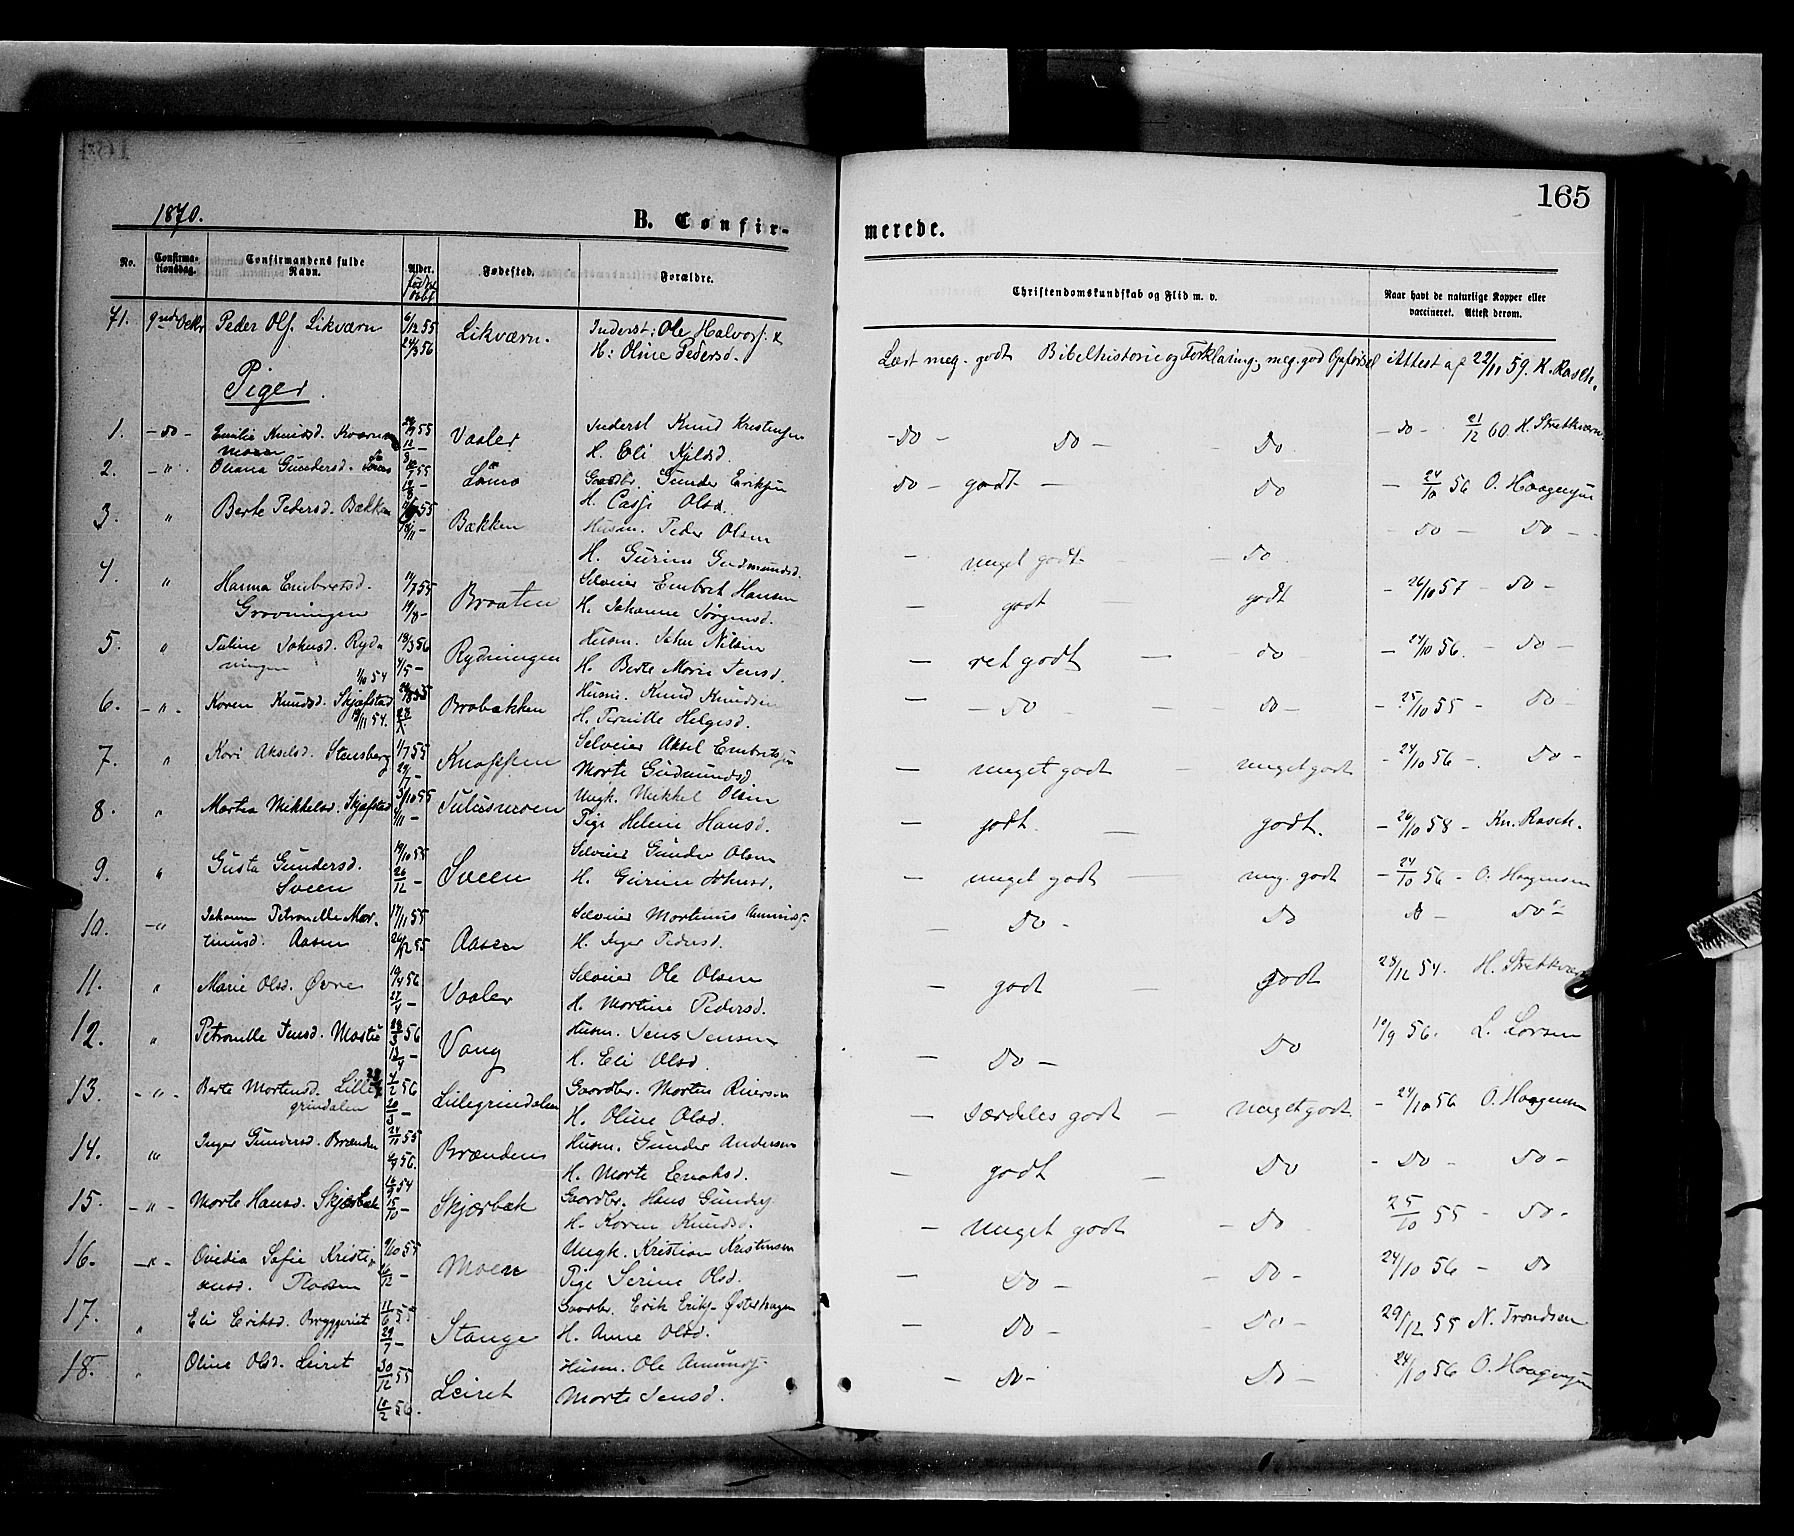 165
1870.
B. Confir-
merede.
No.
Confirma-
tionsdag.
Confirmandens fulde
Navn.
Alder.
født
døbt
Fødested.
Forældre.
Christendomskundskab og Flid m. v.
Naar havt de naturlige Kopper eller
vaccineret. Attest derom.
71. 9nde Octbr Peder Ols. Likværn 6/12 55 Likværn. Inderst: Ole Halvors. &
24/3 56 H: Oline Pedersd.
Lært meg. godt Bibelhistorie og Forklaring, meg. god Opførsel Attest af 22/11 59. K. Rasch.
Piger.
1. - do - Emilie Knudsd. Kværn
moen Vaaler Inderst Knud Kristensen
H. Eli Kjelsd.
- do - do - do - do - 21/12 60. H. Strætkværn
2. - " Oliana Gundersd. Gaardbr. Gunder Eriksen
H. Olsd.
do - godt - do - 24/10 56 O. Haagensen
3. " Berte Pedersd. Bækken Bækken Husm. Peder Olsen
H. Gurine Gudmundsd.
- meget godt - do - do - do -
4. " Hanna Embretsd.
Grovningen 11/7 55
19/8 - Braaten Selveier Embret Hansen
H. Johanne Jørgensd.
- godt - godt - 26/10 57 - do -
5. " Juline Johnsd. Ryd-
ningen 18/3 56
4/5 - Rydningen Husm. John Nilsen
H. Berte Marie Jensd.
- ret godt - do - 24/10 56. - do -
1/10 54
6. - " - Karen Knudsd. Skjæfstad
12/11 54. Brobakken Husm. Knud Knudsen
H. Pernille Helgesd.
- do - do - 25/10 55 - do -
7. " Kari Akselsd. Stensberg 1/7 55
29/7 - Knappen Selveier Aksel Embretsen
Marte Gudmundsd.
- meget godt - meget godt - 24/10 56 - do -
8. " Martea Mikkelsd. Skjæfstad 5/10 55
4/11 - Juliusmoen Ungk. Mikkel Olsen
Pige Helene Hansd.
- godt. - godt. - 26/10 58 - Kn. Rasch.
9. " Gusta Gundersd.
Sveen 19/10 55
26/12 - Sveen Selveier Gunder Olsen
H. Gurine Johnsd.
- meget godt - meg. godt - 24/10 56 - O. Haagensen
10. - " Johanne Petronelle Mar-
tinusd. Aasen 17/11 55
26/12 55 Aasen Selveier Martinus Amunds.
H. Inger Pedersd.
- do - do do - do -
11. " Marie Olsd. Øvre 19/1 56
27/4 - Vaaler Selveier Ole Olsen
H. Martine Pedersd.
- godt - godt 28/12 54. H. Strætkværn
12. " Petronelle Jensd. Vang Husm. Jens Jensen
H. Eli Olsd.
- do - do 10/9 56. L. Larsen
13. - " - Berte Mortensd. Lille
grindalen 4/2 56
20/3 - Lillegrindalen Gaardbr. Morten Iversen
H. Oline Olsd.
- særdeles godt - meget godt. - 24/10 56 O. Haagensen
14. " Inger Gundersd. Brænden 24/11 55
56. Brænden Husm. Gunder Andersen
H. Marte Enoksd.
- godt - do - do - do -
15. - " - Marte Hansd. Skjærbæk 54
15/10 - Skjærbæk Gaardbr. Hans Gunders.
H. Karen Knudsd.
- meget godt - do - 25/10 55 - do -
16. - " - Ovidia Sofie Kristi-
ansd. 9/10 55
26/12 - Moen Ungk. Kristian Kristensen
Pige Serine Olsd.
- do - - do - 24/10 56 - do
17. " Eli Eriksd. Bryggeriet 11/6 55
29/7 - Stange Gaardbr. Erik Eriks. Østerhagen
H. Anne Olsd.
- do - - do - 29/12 55 N. Trondsen
18. " Oline Olsd. Leiret 30/12 55
10/2 56. Leiret Husm. Ole Amunds.
Marte Jensd.
- do - do - 24/10 56 O. Haagensen